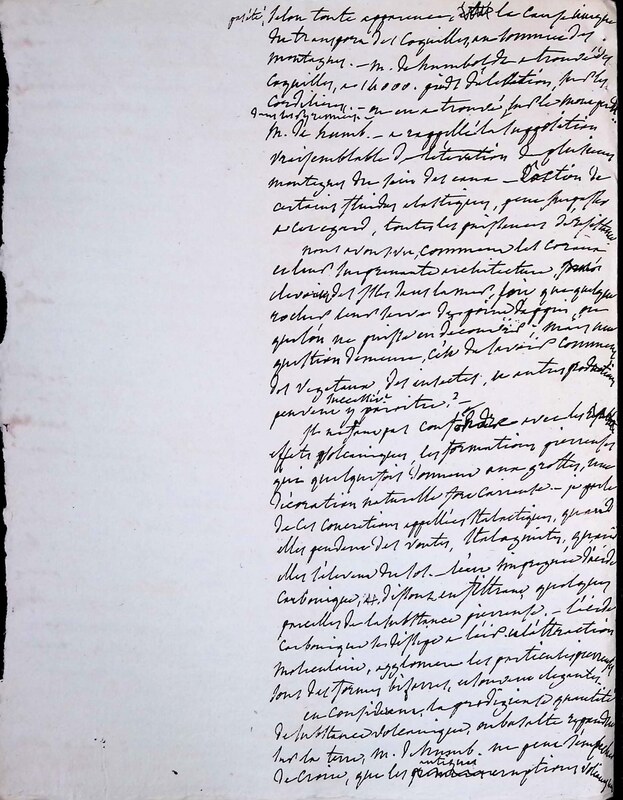 selon toute apparence, la cause unique
du transport des coquilles, au sommet des
montagnes. - M. de humboldt a trouvé des
coquilles, a 14000. pieds d'élévation, sur les
Cordilieres. - on en a trouvé sur le mont perdu
dans les Pyrenées -
M. de humb. - a rappellé la supposition
vraisemblable de de plusieurs
montagnes du sein des eaux - l'action de
certains fluides elastiques, peut surpasser
a cet egard, toutes les puissances de resistance
nous avons vu, comment les coraux
et leur surprenante architecture,
des isles dans la mer, pour que quelque
rocher leur serve de point d'appui, ou
qu'on ne puisse en découvrir; mais une
question demeure, c'est de savoir comment
des vegetaux, des insectes, et autres productions
successives
peuvent y paroitre? -
Il ne faut pas confondre avec les
effets volcaniques, les formations pierreuses
qui quelquefois donnent aux grottes, une
décoration naturelle fort curieuse. - je parle
de ces concretions appellées stalactiques, quand
elles pendent des voutes, stalagmites, quand
elles s'elevent du sol. - l'eau impregnée d'acide
carbonique, dissout en filtrant quelques
parcelles de la substance pierreuse. - l'acide
carbonique se dissipe a l'air, et l'attraction
moleculaire, agglomere les particules pierreuses
sous des formes bizarres, et souvent elegantes.
en considerant, la prodigieuse quantité
de substance volcanique, ou basalte repandue
sur la terre, M. de humb. ne peut s'empecher
antiques
de croire, que les eruptions volcaniques